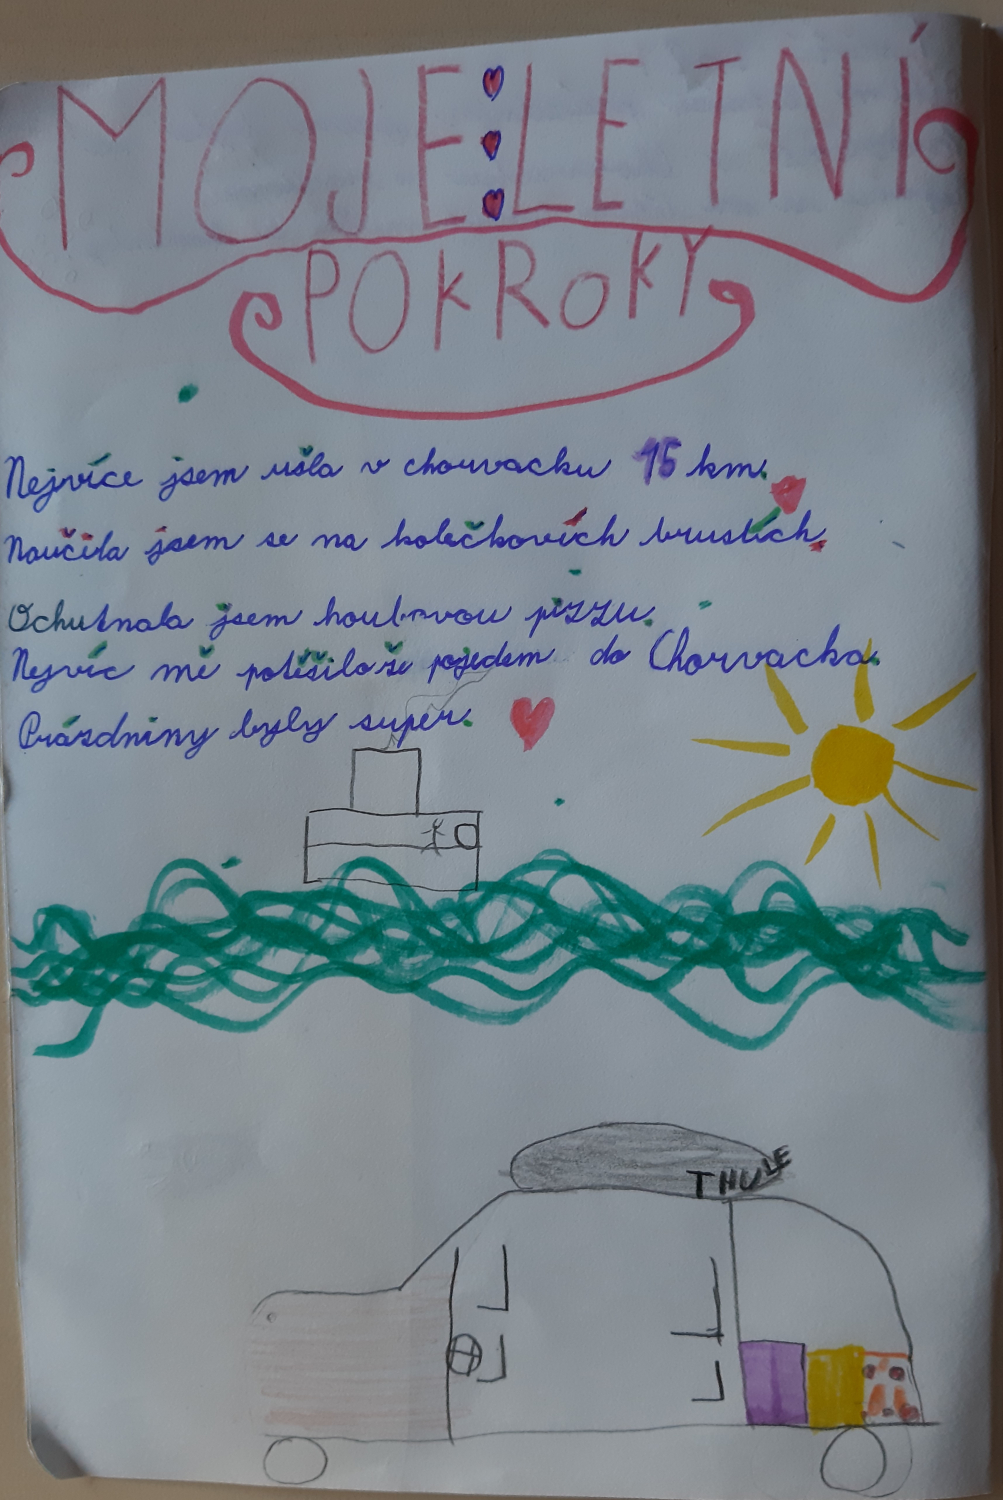 MOJE LETNÍ
POKROKY
Nejvíce jsem ušla v chorvacku 15 km.
Naučila jsem se na kolečkovích bruslích.
Ochutnala jsem houbovou pizzu.
Nejvíc mě potěšilo že pojedem do Chorvacka.
Prázdniny byly super.
THULE